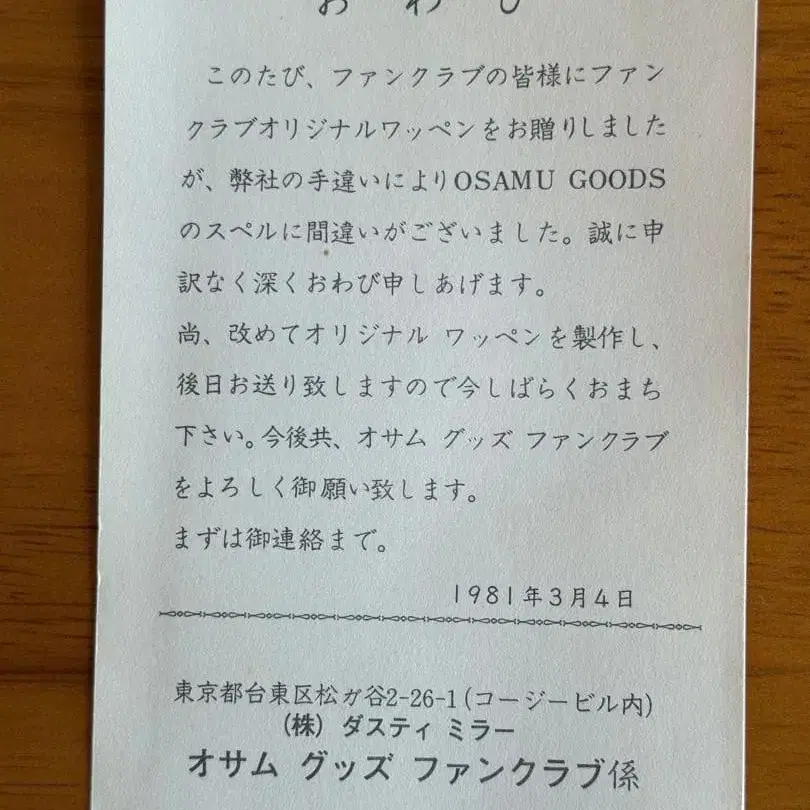 おわび
このたび、ファンクラブの皆様にファン
クラブオリジナルワッペンをお贈りしました
が、弊社の手違いによりOSAMU GOODS
のスペルに間違いがございました。誠に申
訳なく深くおわび申しあげます。
尚、改めてオリジナル ワッペンを製作し、
後日お送り致しますので今しばらくおまち
下さい。今後共、オサム グッズ ファンクラブ
をよろしく御願い致します。
まずは御連絡まで。
1981年3月4日
東京都台東区松が谷2-26-1(コージービル内)
(株) ダスティ ミラー
オサム グッズ ファンクラブ係